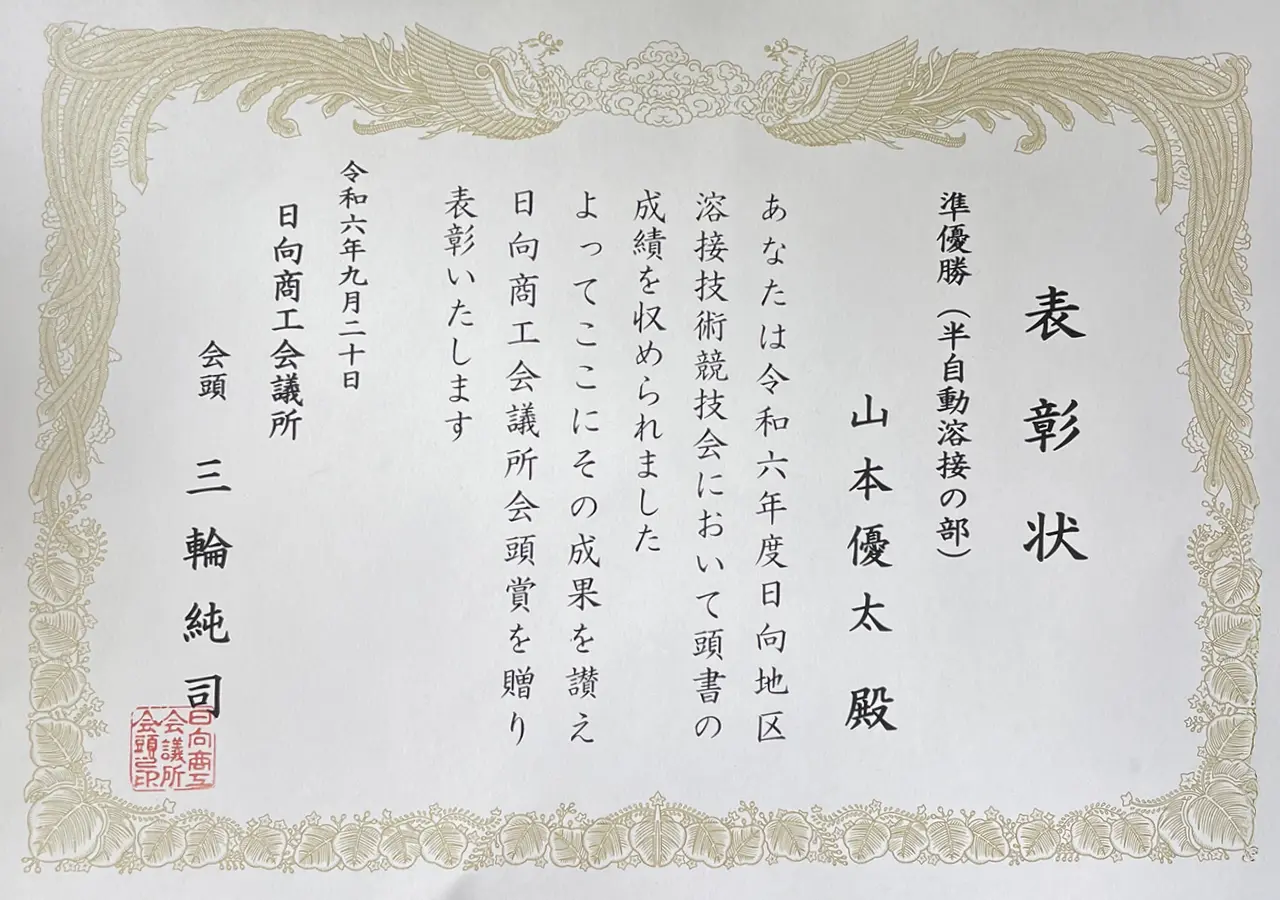 表彰状
準優勝（半自動溶接の部）
山本優太 殿
あなたは令和六年度日向地区
溶接技術競技会において頭書の
成績を収められました
よってここにその成果を讃え
日向商工会議所会頭賞を贈り
表彰いたします
令和六年九月二十日
日向商工会議所
会頭 三輪純司
日向商工
会議所
会頭之印